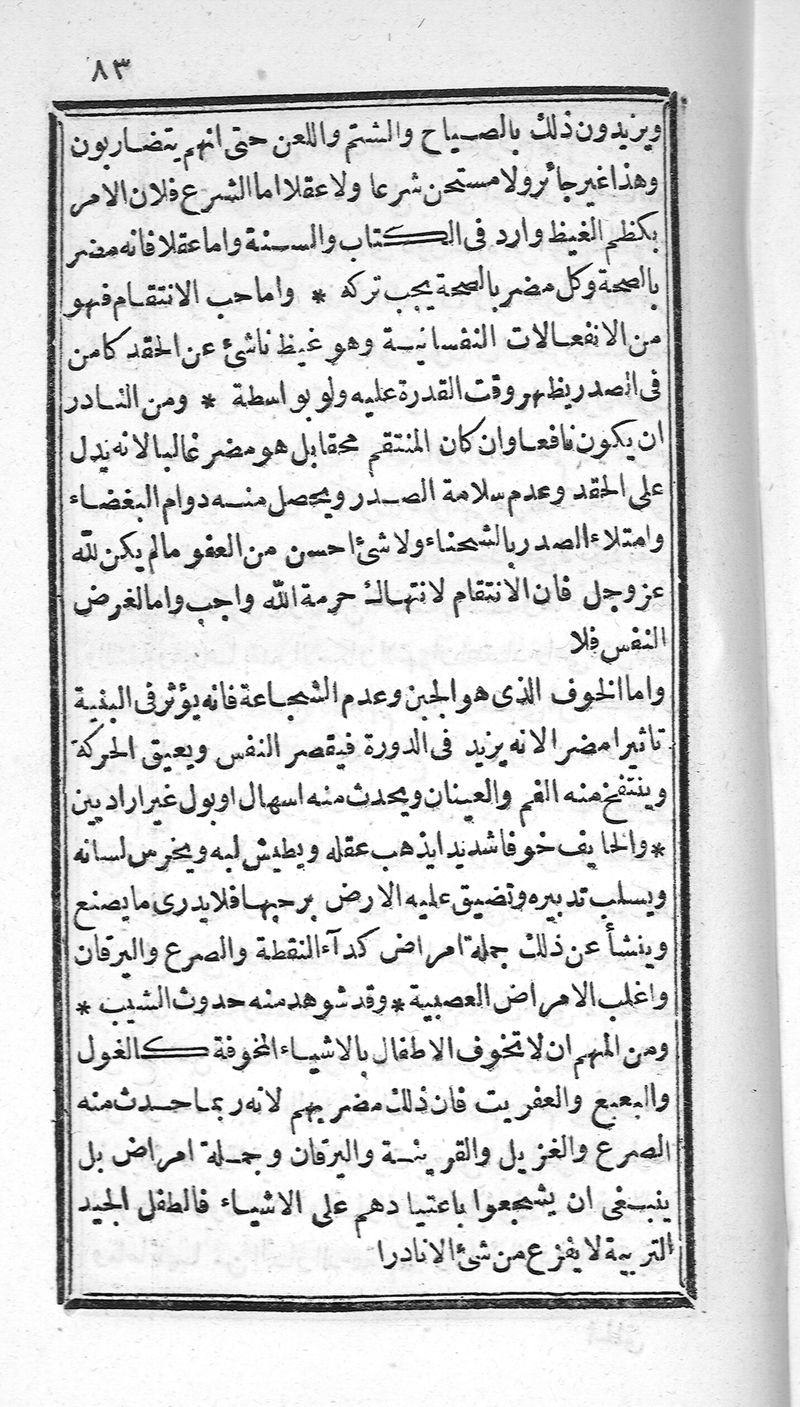 ٨٣
ويزيدون ذلك بالصياح والشتم واللعن حتى انهم يتضاربون
وهذا غير جائز ولا مستحن شرعا ولا عقلا اما الشرع فلان الامر
بكظم الغيظ وارد فى الكتاب والسنة واما عقلا فانه مضر
بالصحة وكل مضر بالصحة يجب تركه * واما حب الانتقام فهو
من الانفعالات النفسانية وهو غيظ ناشئ عن الحقد كامن
فى الصدر يظهر وقت القدرة عليه ولو بواسطة * ومن النادر
ان يكون نافعا وان كان المنتقم محقا بل هو مضر غالبا لانه يدل
على الحقد وعدم سلامة الصدر ويحصل منه دوام البغضاء
وامتلاء الصدر بالشحناء ولا شئ احسن من العفو مالم يكن لله
عز وجل فان الانتقام لانتهاك حرمة الله واجب واما لغرض
النفس فلا
واما الخوف الذى هو الجبن وعدم الشجاعة فانه يؤثر فى البنية
تاثيرا مضرا لانه يزيد فى الدورة فيقصر النفس ويعيق الحركة
وينتفخ منه الفم والعينان ويحدث منه اسهال او بول غير اراديين
* والخايف خوفا شديدا يذهب عقله ويطيش لبه ويخرس لسانه
ويسلب تدبيره وتضيق عليه الارض برحبها فلا يدرى ما يصنع
وينشأ عن ذلك جملة امراض كدآء النقطة والصرع واليرقان
واغلب الامراض العصبية * وقد شوهد منه حدوث الشيب *
ومن المهم ان لا تخوف الاطفال بالاشياء المخوفة كالغول
والبعبع والعفريت فان ذلك مضر بهم لانه ربما حدث منه
الصرع والغزيل والقرينة واليرقان وجملة امراض بل
ينبغى ان يشجعوا باعتيادهم على الاشياء فالطفل الجيد
التربية لا يفزع من شئ الا نادرا